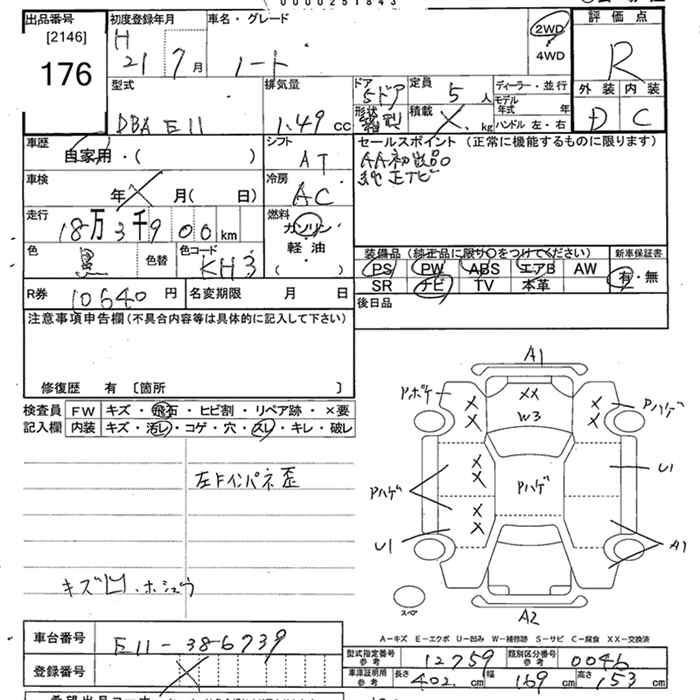 0000251843
出品番号 初度登録年月 車名・グレード 2WD 評価点
[2146] H 4WD
176 21 7月 ノート R
型式 排気量 ドア 定員 ディーラー・並行 外装 内装
5ドア 5人 モデル年式 年
DBA E11 1.49cc 形状 箱型 積載 X kg ハンドル 左・右 D C
車歴 シフト セールスポイント (正常に機能するものに限ります)
自家用・( ) AT AA初出品
車検 冷房 純正ナビ
年 月( 日) AC
走行 18万3千900km 燃料 ガソリン
色 黒 色替 色コード KH3 軽油 ( )
装備品(純正品に限り○をつけてください) 新車保証書
PS PW ABS エアB AW 有・無
SR ナビ TV 本革
R券 10640円 名変期限 月 日 後日品
注意事項申告欄(不具合内容等は具体的に記入して下さい)
修復歴 有 〔箇所 〕
検査員 FW キズ・飛石・ヒビ割・リペア跡・×要
記入欄 内装 キズ・汚レ・コゲ・穴・スレ・キレ・破レ
左Fインパネ歪
キズ凹・ホシュウ
A1
Pボケ XX Pハゲ
X X W3 X X
X X Pハゲ U1
Pハゲ
X X
U1 A1
スペア A2
A-キズ E-エクボ U-凹み W-補修跡 S-サビ C-腐食 XX-交換済
車台番号 E11-386739
型式指定番号 参考 12759 類別区分番号 参考 0046
登録番号
車庫証明用 参考 長さ 402.cm 幅 169cm 高さ 153cm
希望出品コーナー